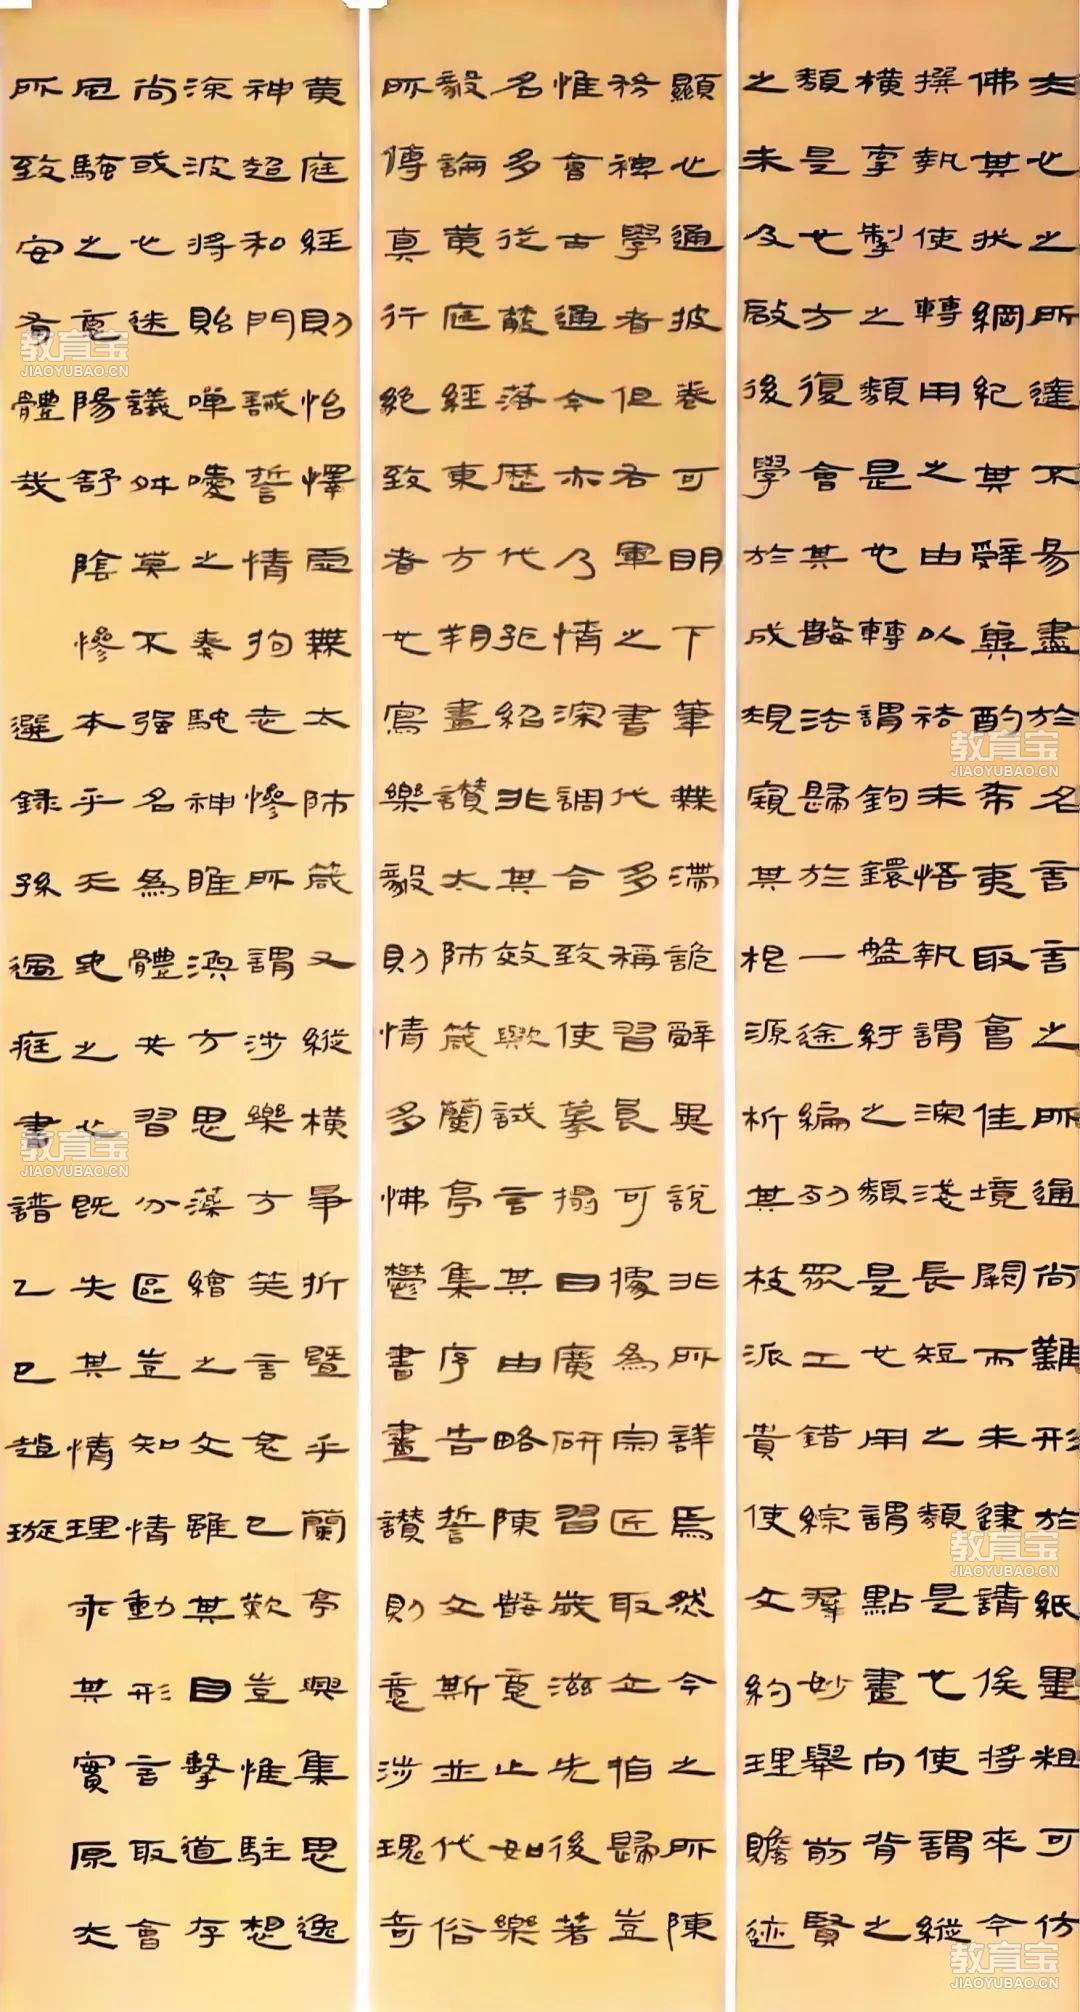 夫心之所達不易盡於名言言之所通尚難形於紙墨粗可仿
佛其狀綱紀其辭冀酌希夷取會佳境闕而未逮請俟將來今
撰執使轉用之由以祛未悟執謂深淺長短之類是也使謂縱
橫牽掣之類是也轉謂鉤鐶盤紆之類是也用謂點畫向背之
類是也方復會其數法歸於一途編列眾工錯綜群妙舉前賢
之未及啟後學於成規窺其根源析其枝派貴使文約理贍迹
顯心通披卷可明下筆無滯詭辭異說非所詳焉然今之所陳
務裨學者但右軍之書代多稱習良可據為宗匠取立指歸豈
惟會古通今亦乃情深調合致使摹搨日廣研習歲滋先後著
名多從散落歷代孤紹非其效歟試言其由略陳數意止如樂
毅論黃庭經東方朔畫讚太師箴蘭亭集序告誓文斯並代俗
所傳真行絕致者也寫樂毅則情多怫鬱書畫讚則意涉瑰奇
黃庭經則怡懌虛無太師箴又縱橫爭折暨乎蘭亭興集思逸
神超和門誡誓情拘志慘所謂涉樂方笑言哀已歎豈惟駐想
深波將貽嘽噯之奏馳神睢渙方思藻繪之文雖其目擊道存
尚或心迷議舛莫不強名為體共習分區豈知情動形言取會
風騷之意陽舒陰慘本乎天地之心既失其情理乖其實原夫
所致安有體哉 選錄孫過庭書譜乙巳趙璇
教育宝
JIAOYUBAO.CN
教育宝
JIAOYUBAO.CN
教育宝
JIAOYUBAO.CN
教育宝
JIAOYUBAO.CN
教育宝
JIAOYUBAO.CN